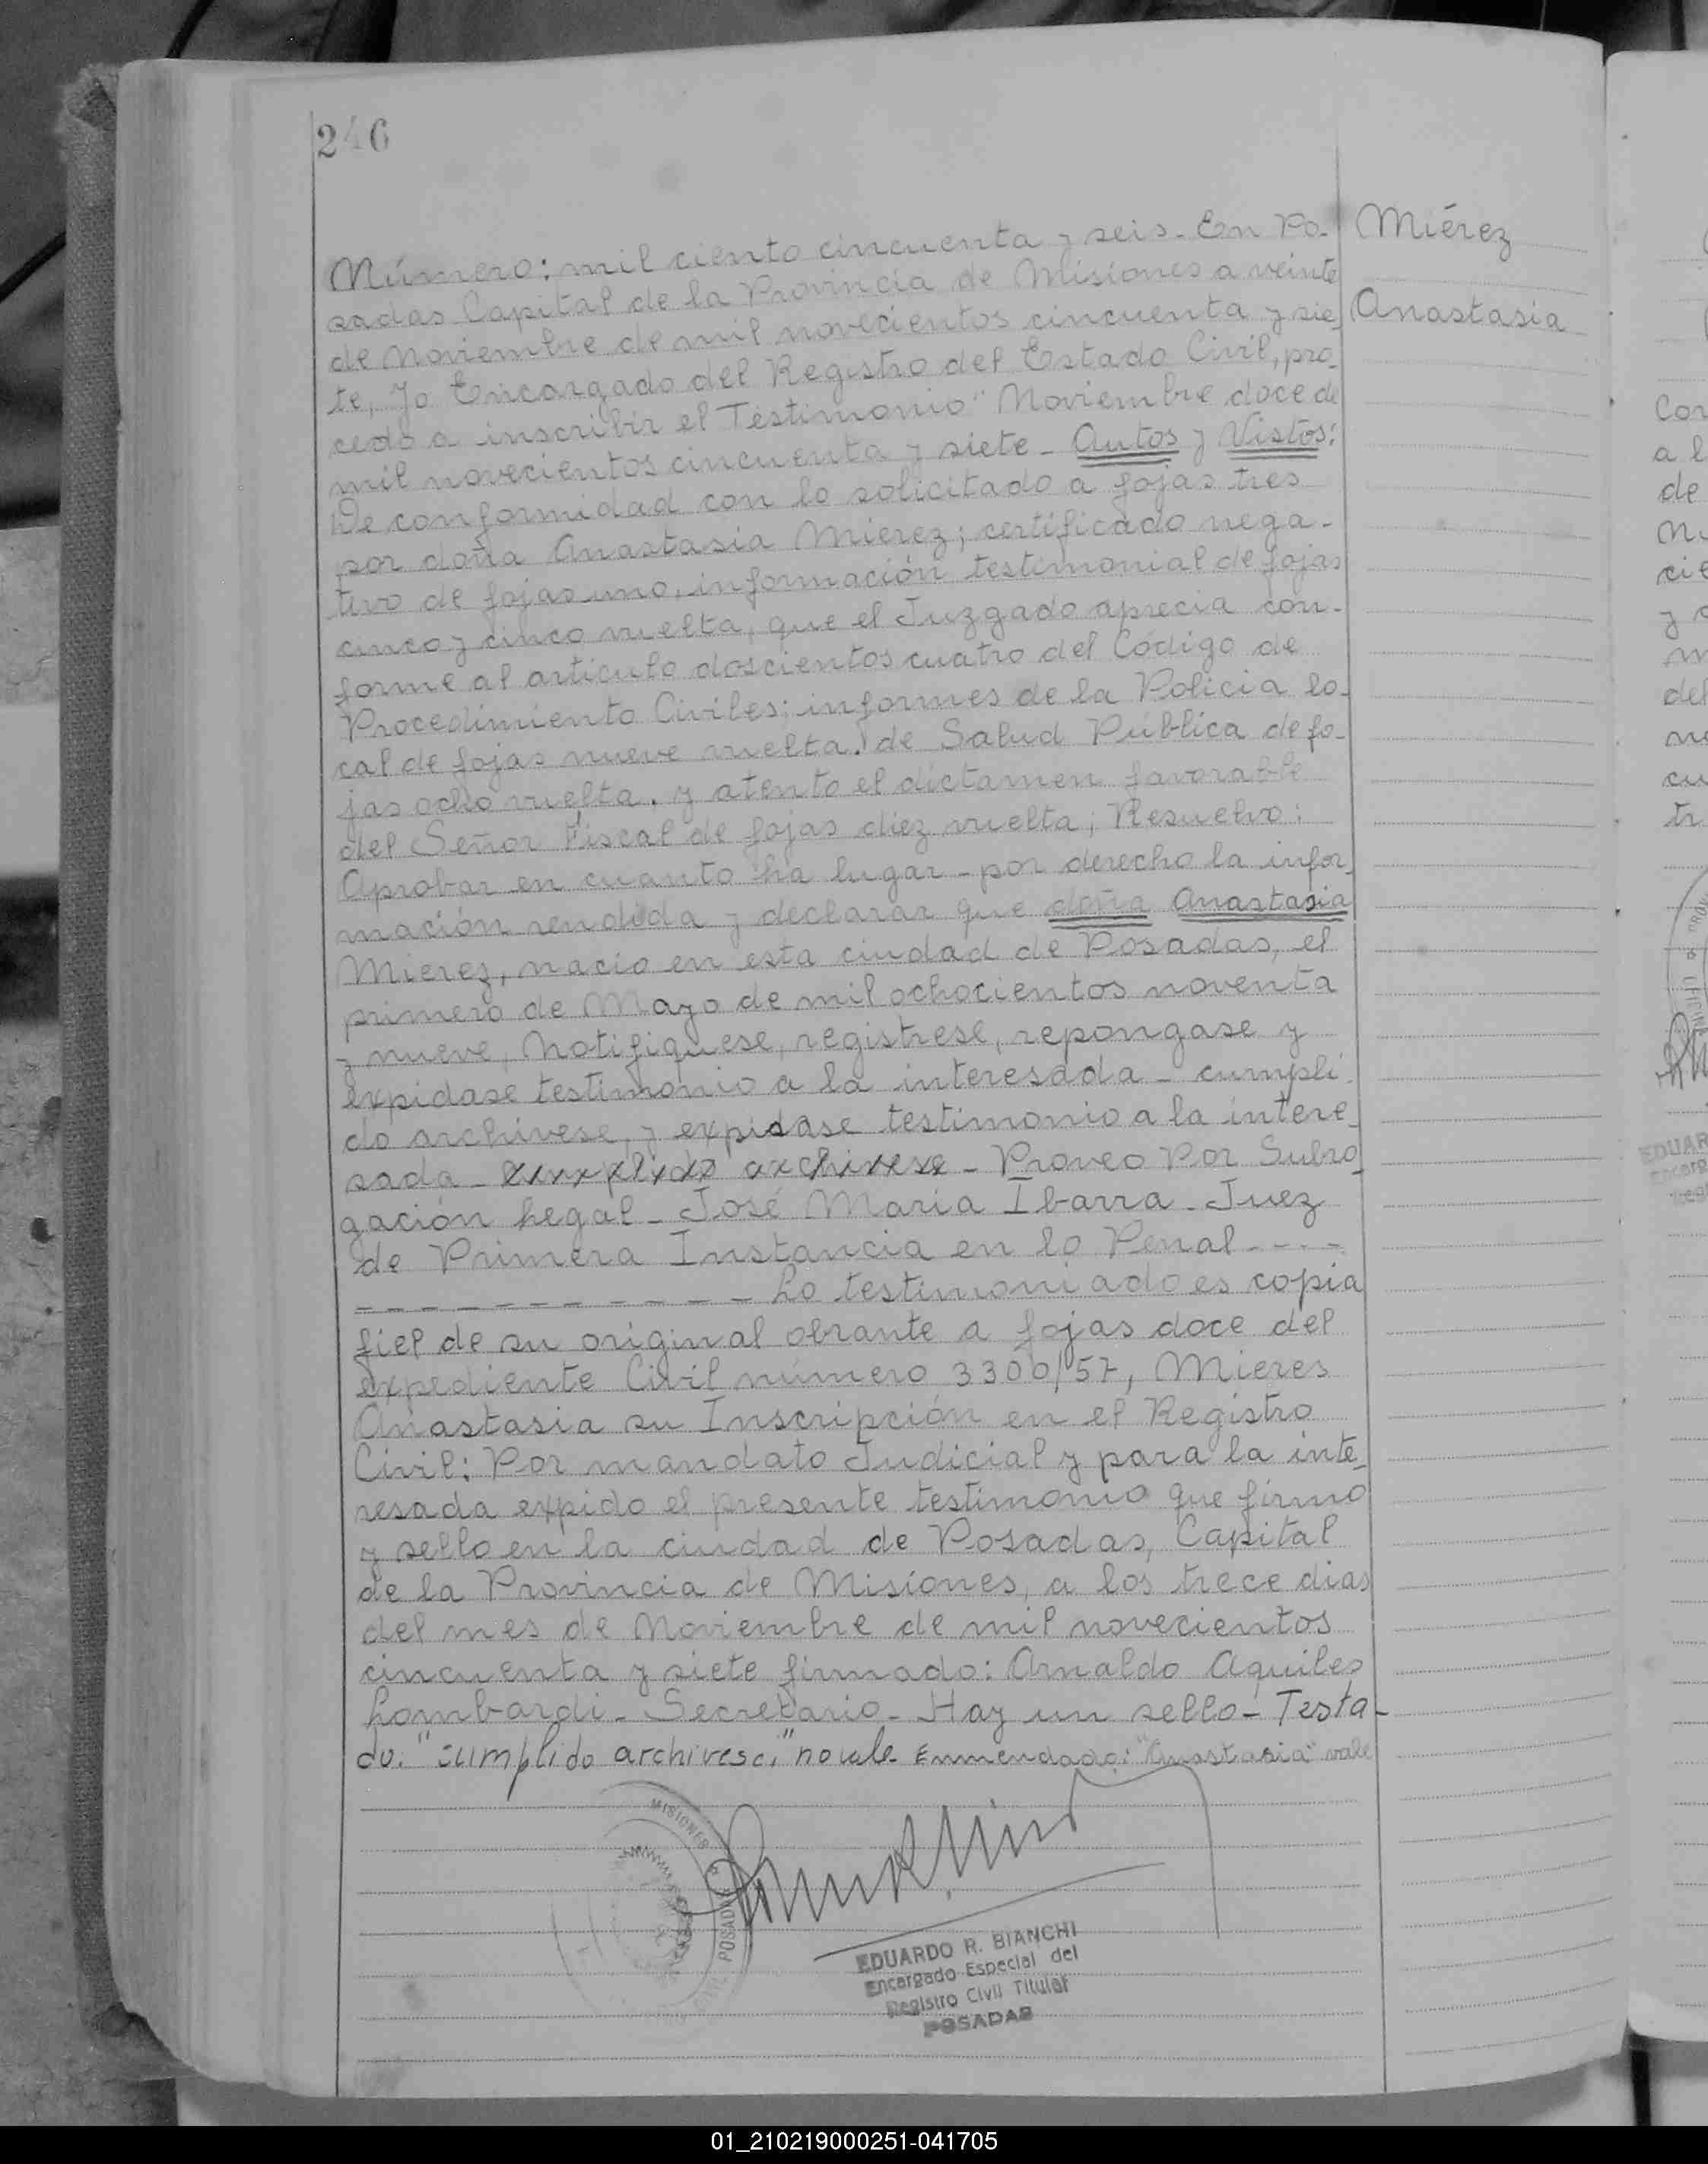 246
Número: mil ciento cincuenta y seis. En Po-
Miérez
sadas Capital de la Provincia de Misiones a veinte
Anastasia
de Noviembre de mil novecientos cincuenta y sie
te, yo Encargado del Registro del Estado Civil, pro-
cedo a inscribir el Testimonio "Noviembre doce de
mil novecientos cincuenta y siete - Autos y Vistos:
De conformidad con lo solicitado a fojas tres
por doña Anastasia Mierez; certificado nega-
tivo de fojas uno, información testimonial de fojas
cinco y cinco vuelta, que el Juzgado aprecia con-
forme al artículo doscientos cuatro del Código de
Procedimiento Civiles; informes de la Policia lo-
cal de fojas nueve vuelta. de Salud Pública de fo-
jas ocho vuelta. y atento el dictamen favorable
del Señor Fiscal de fojas diez vuelta; Resuelvo:
Aprobar en cuanto ha lugar - por derecho la infor-
mación rendida y declarar que doña Anastasia
Mierez, nacio en esta ciudad de Posadas, el
primero de Mayo de mil ochocientos noventa
y nueve, Notifiquese, registrese, repongase y
expidase testimonio a la interesada - cumpli-
do archivese, y expidase testimonio a la intere-
sada - cumplido archivese - Proveo Por Subro-
gación Legal - José Maria Ibarra - Juez
de Primera Instancia en lo Penal - - - -
- - - - - - - - - - - Lo testimoniado es copia
fiel de su original obrante a fojas doce del
expediente Civil número 3300/57, Mieres
Anastasia su Inscripción en el Registro
Civil: Por mandato Judicial y para la inte-
resada expido el presente testimonio que firmo
y sello en la ciudad de Posadas, Capital
de la Provincia de Misiones, a los trece dias
del mes de Noviembre de mil novecientos
cincuenta y siete firmado: Arnaldo Aquiles
Lombardi - Secretario - Hay un sello - Testa-
do: "cumplido archivese;" no vale - Enmendado: "Anastasia" vale
MISIONES
POSADAS
EDUARDO R. BIANCHI
Encargado Especial del
Registro Civil Titular
POSADAS
01_210219000251-041705